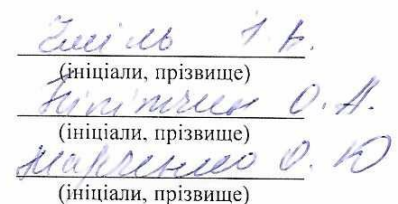 І. К.
(ініціали, прізвище)
О. А.
(ініціали, прізвище)
Марченко О. Ю
(ініціали, прізвище)